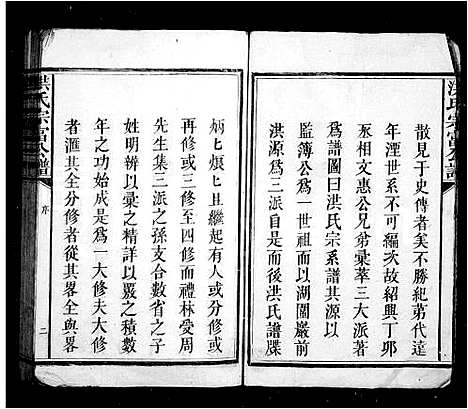 散見于史傳者矣不勝紀苐代遠
年湮世系不可編次故紹興丁卯
丞相文惠公兄弟彙萃三大派著
爲譜圖曰洪氏宗系譜其源以
監簿公爲一世祖而以湖園嚴前
洪源爲三派自後洪氏譜牒
炳匕烺匕且繼起有人或分修或
再修或三修至四修而禮林愛周
先生集三派之孫支合數省之子
姓明辨以彙之精詳以覈之積數
年之功始成是爲一大修夫大修
者滙其全分修者從其畧全與畧
洪氏宗富公譜
序
二